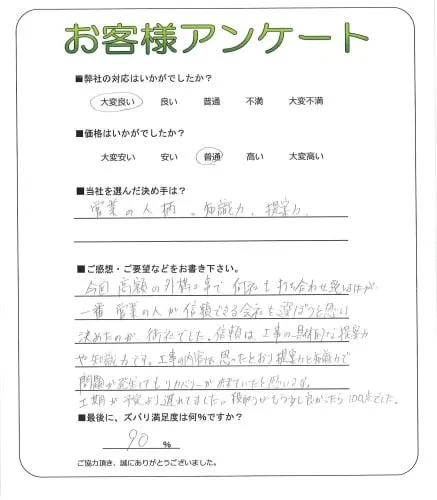 お客様アンケート
■弊社の対応はいかがでしたか?
大変良い 良い 普通 不満 大変不満
■価格はいかがでしたか?
大変安い 安い 普通 高い 大変高い
■当社を選んだ決め手は?
営業の人柄、知識力、提案力
■ご感想・ご要望などをお書き下さい。
今回 高額の外構工事で 何社も打ち合わせ
一番 営業の人が信頼できる会社を選ぼうと思い
決めたのが 御社でした。信頼は 工事の具体的な提案力
や知識力です。工事の内容は思ったとおり提案力と知識力で
問題が発生してもリカバリーが出来ていたと思います。
工期が予定より遅れてました。段取りがもう少し良かったら100点でした。
■最後に、ズバリ満足度は何%ですか?
90 %
ご協力頂き、誠にありがとうございました。